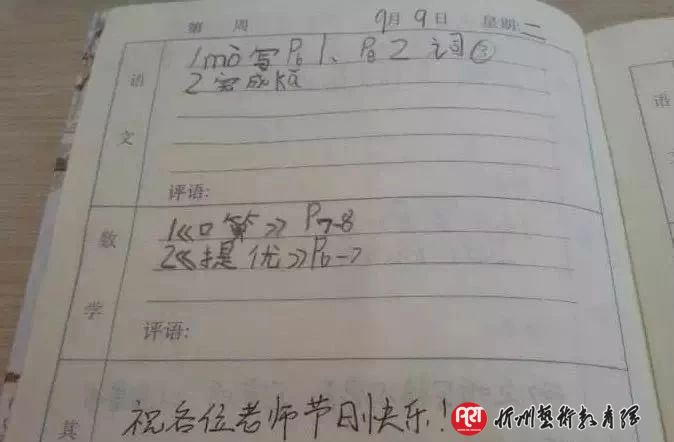 第 周 9月9日 星期:二
语文
1mò写P61、P82词③
2完成kǎ
评语:
数学
1《口算》P7-8
2《提优》P6-7
评语:
其
祝各位老师节日快乐!
语
ART 忻州藝術教育網